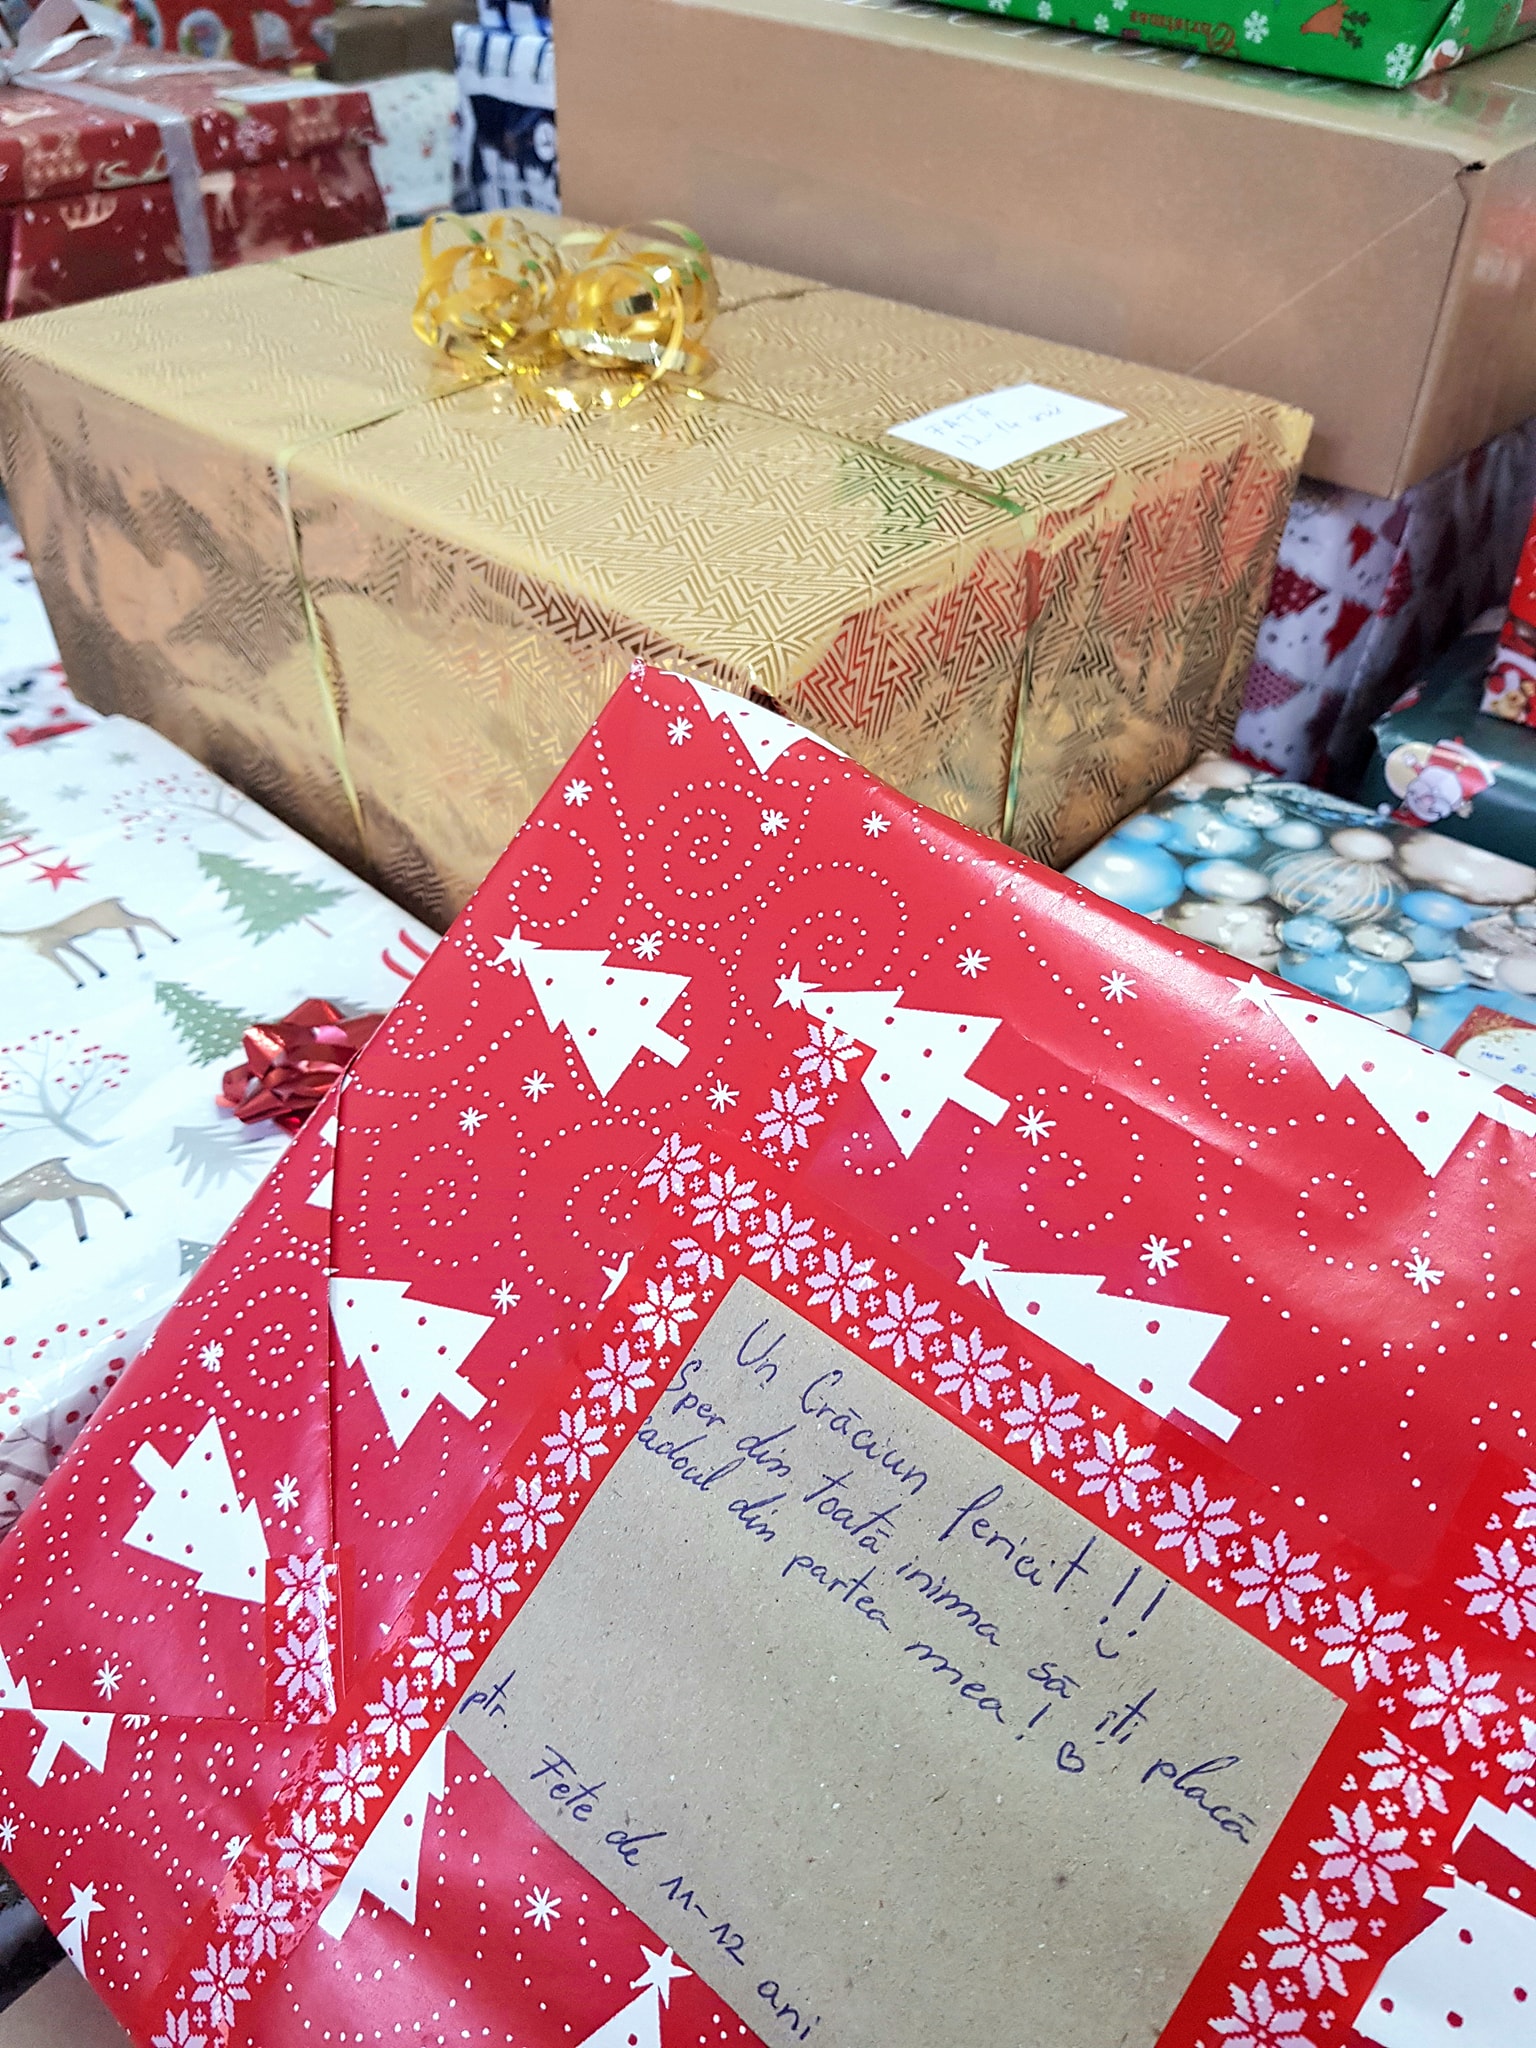 Christmas
FATĂ
12-14 ani
Un Crăciun fericit!!
Sper din toată inima să îți placă
cadoul din partea mea!
ptr.
Fete de 11-12 ani